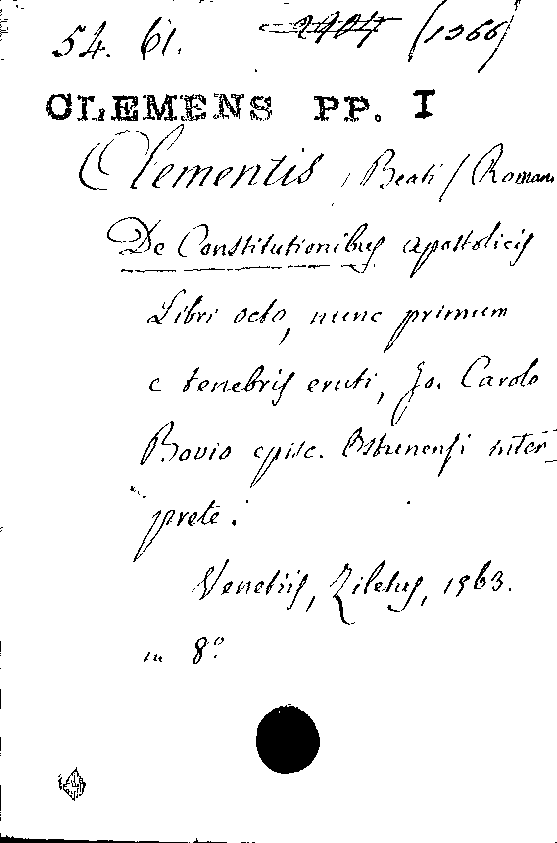 54. 61. 2904 (1366)
CLEMENS PP. I
Clementis, Beati / Romani
De Constitutionibus apostolicis
Libri octo, nunc primum
e tenebris eruti, Jo. Carolo
Bovio episc. Ostunensi inter-
prete.
Venetiis, Ziletus, 1563.
in 8º